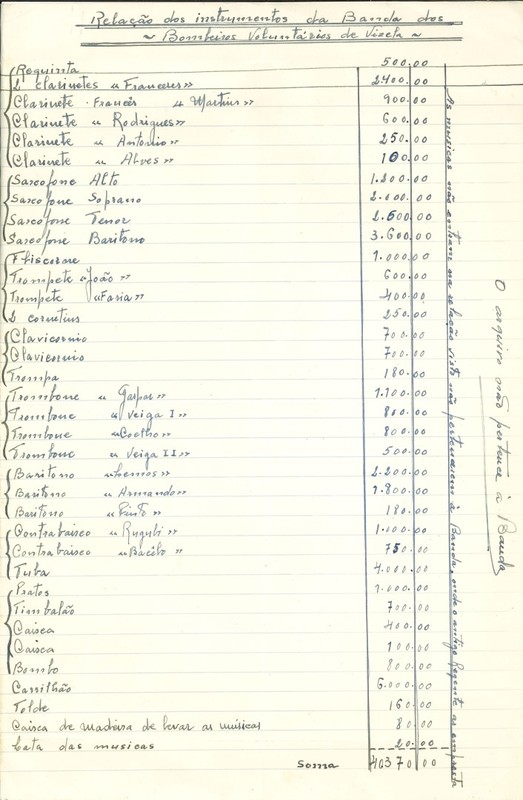 Relação dos instrumentos da Banda dos
~ Bombeiros Voluntários de Vizela ~
Requinta 500.00
2 clarinetes "Franceses" 2400.00
Clarinete Francês "Martins" 900.00
Clarinete "Rodrigues" 600.00
Clarinete "Antonio" 250.00
Clarinete "Alves" 100.00
Saxofone Alto 1.200.00
Saxofone Soprano 2.000.00
Saxofone Tenor 2.500.00
Saxofone Baritono 3.600.00
Fliscorne 1.000.00
Trompete "João" 600.00
Trompete "Faria" 400.00
2 cornetins 250.00
Clavicornio 700.00
Clavicornio 700.00
Trompa 180.00
Trombone "Gaspar" 1.100.00
Trombone "Veiga I" 800.00
Trombone "Coelho" 800.00
Trombone "Veiga II" 500.00
Baritono "Lemos" 2.200.00
Baritono "Armando" 1.800.00
Baritono "Pinto" 180.00
Contrabaixo 1.000.00
Contrabaixo 750.00
Tuba 4.000.00
Pratos 1.000.00
Timbalão 700.00
Caixa 400.00
Caixa 100.00
Bombo 800.00
Carrilhão 6.000.00
Tolde 160.00
Caixa de madeira de levar as músicas 80.00
Lata das musicas 20.00
Soma 40370.00
As musicas não entram na relação visto não pertencerem à Banda, onde o antigo Regente as empresta
O arquivo não pertence à Banda